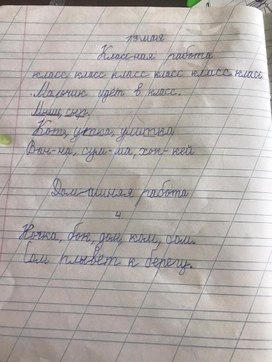 13 мая
Классная работа
класс класс класс класс класс класс
Мальчик идёт в класс.
Мыш, сыр.
Кот, утка, улитка
Ван-на, сум-ма, хок-кей
Домашняя работа
4
Кочка, бок, дом, ком, сом.
Сом плывёт к берегу.